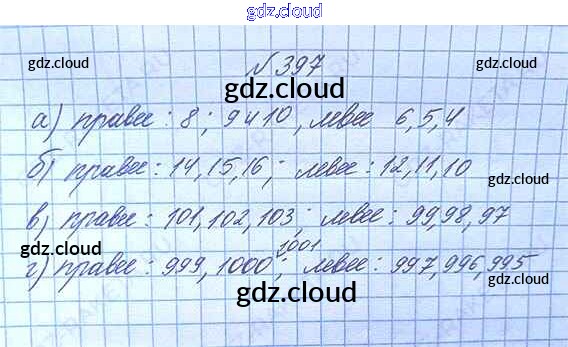 gdz.cloud
gdz.cloud № 397 gdz.cloud
gdz.cloud
а) правее : 8 ; 9 и 10 , левее 6, 5, 4
gdz.cloud
б) правее : 14, 15, 16 ; левее : 12, 11, 10
gdz.cloud
в) правее : 101, 102, 103 ; левее : 99, 98, 97
gdz.cloud gdz.cloud
1001
г) правее : 999, 1000 ; левее : 997, 996, 995
gdz.cloud